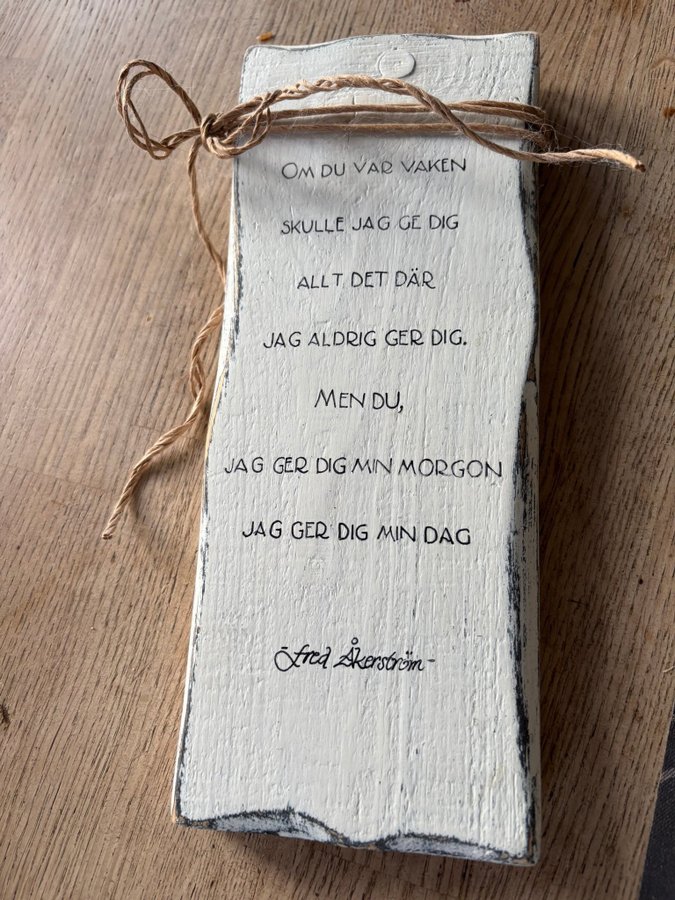 OM DU VAR VAKEN
SKULLE JAG GE DIG
ALLT DET DÄR
JAG ALDRIG GER DIG.
MEN DU,
JAG GER DIG MIN MORGON
JAG GER DIG MIN DAG
-Fred Åkerström-